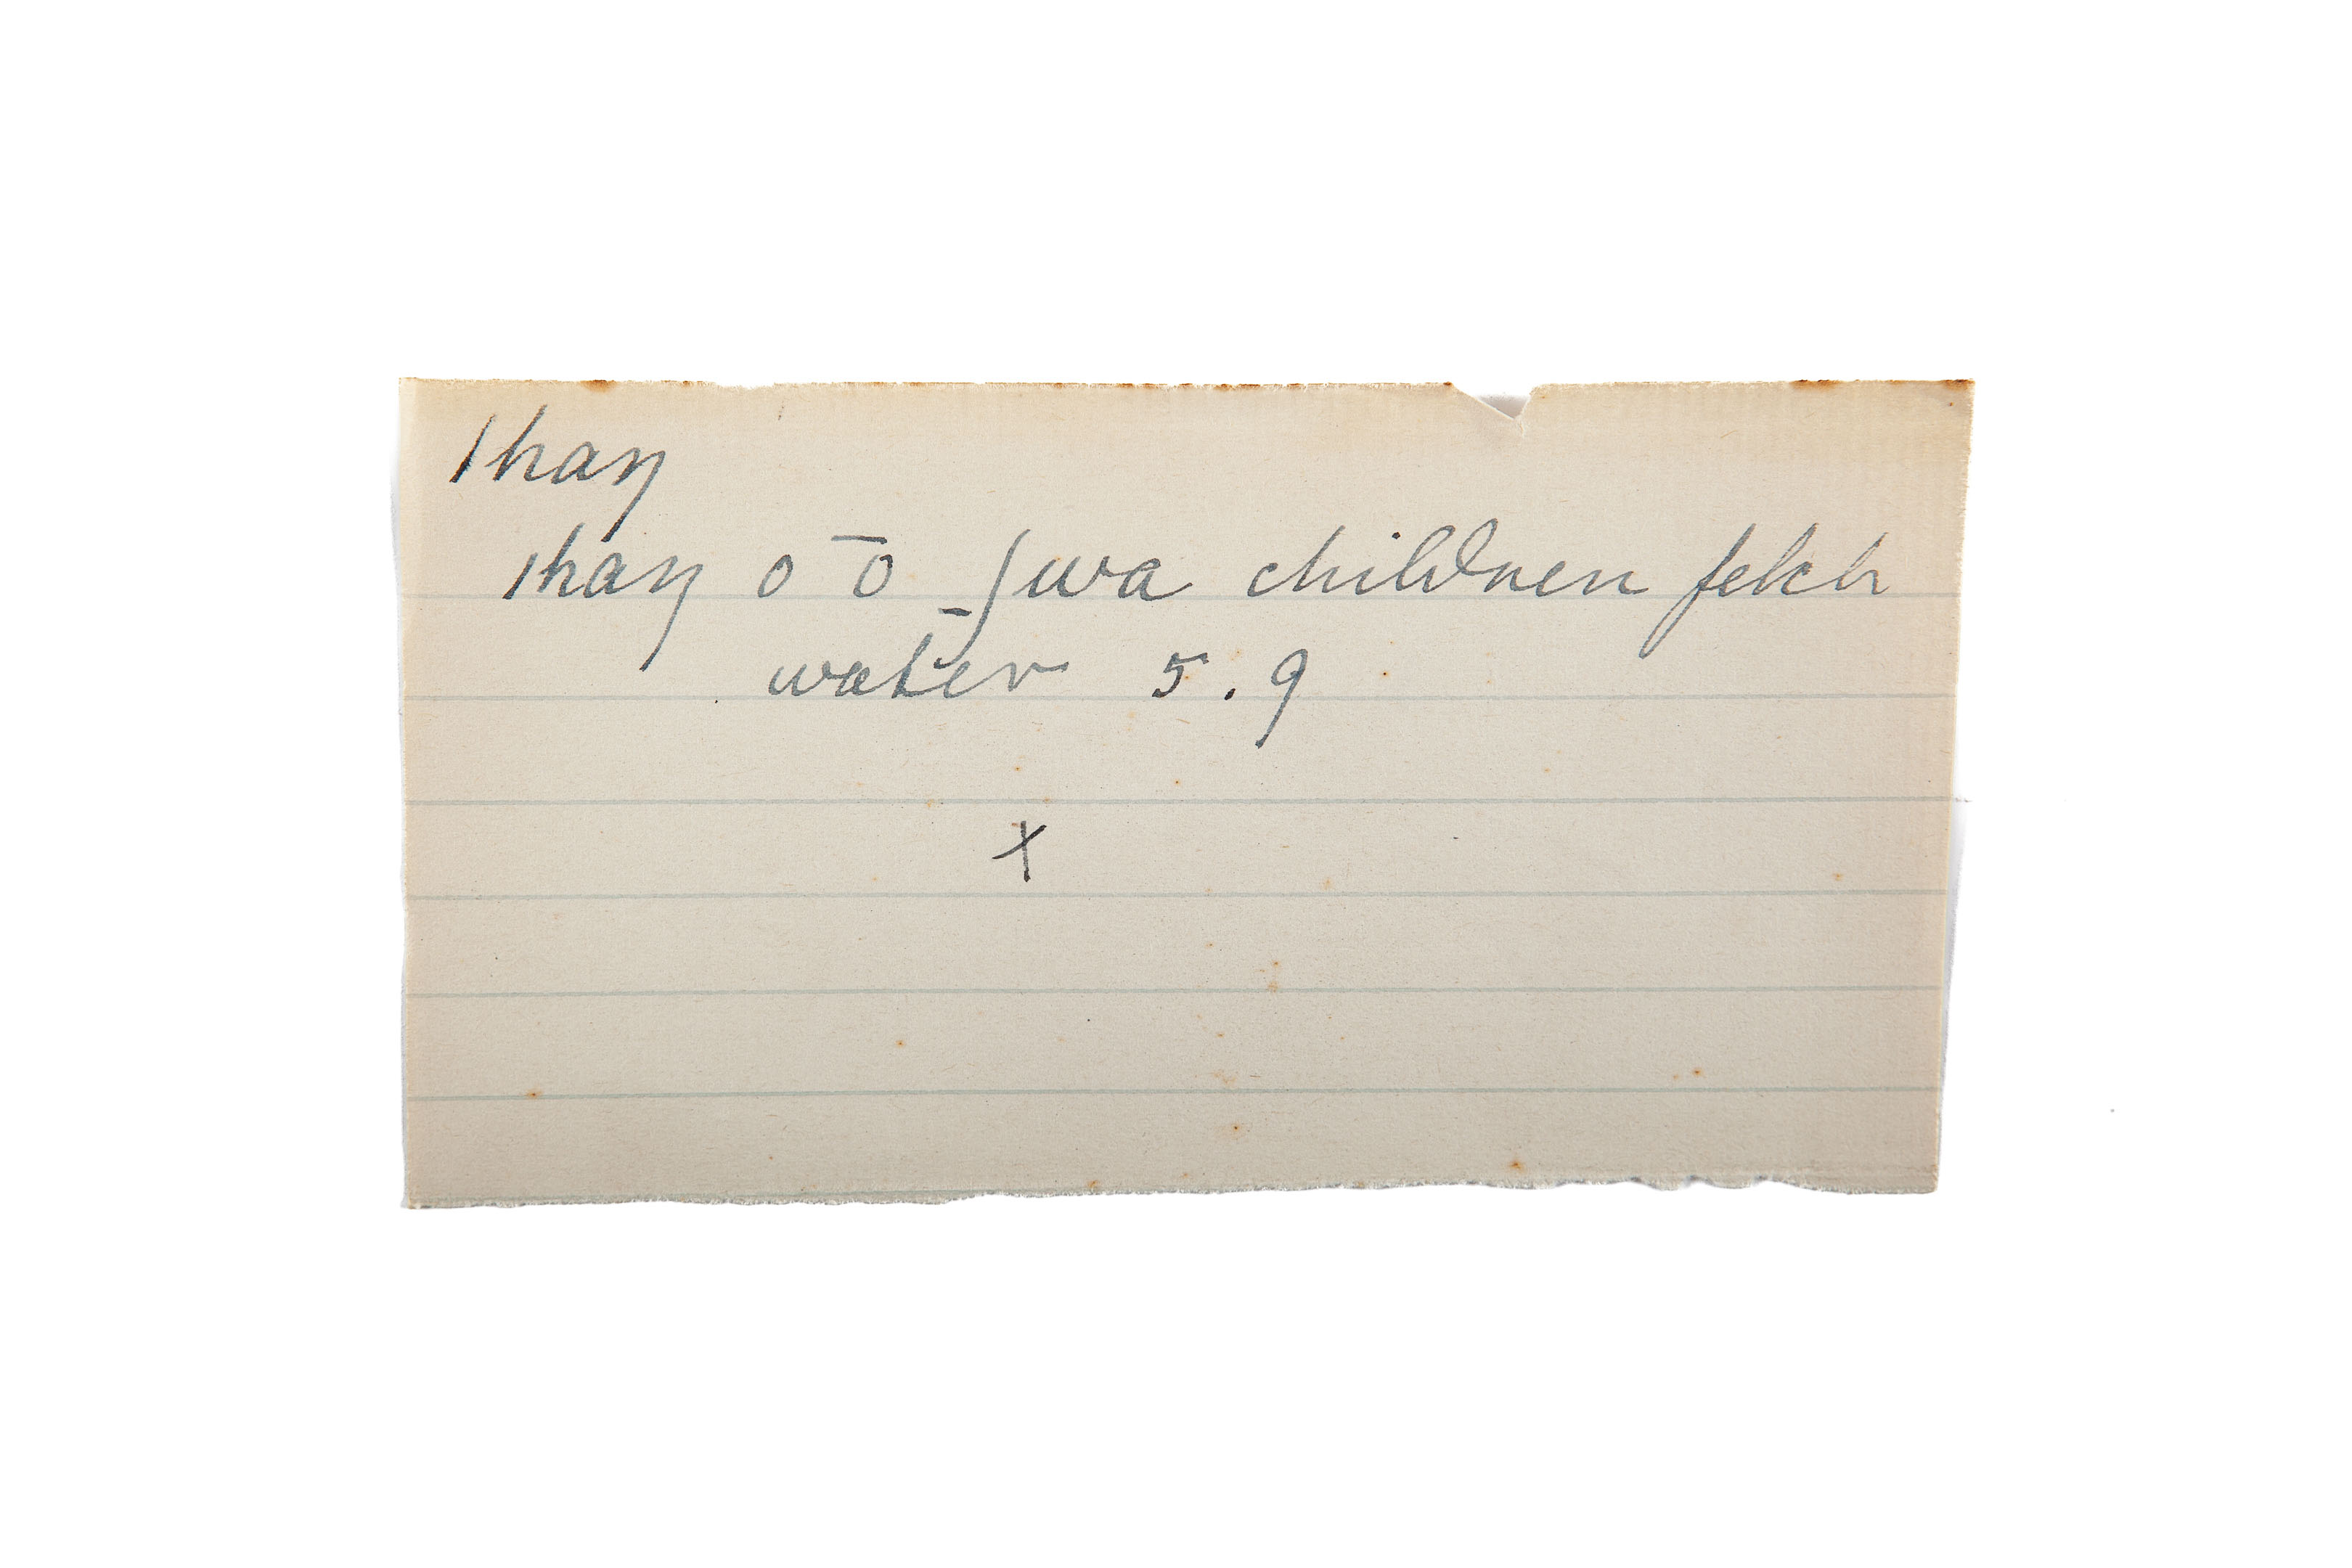 ǀhaŋ
ǀhaŋ o ō _ʃwa children fetch
water 5.9
x